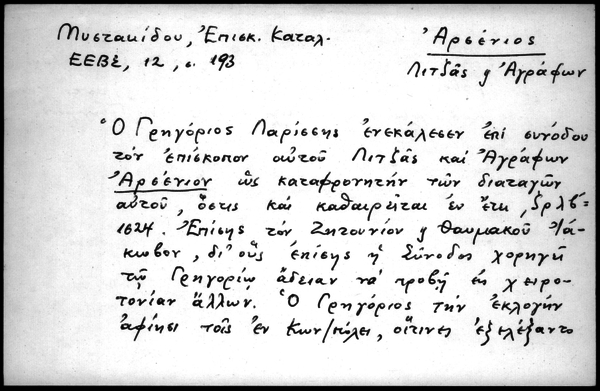 Μυστακίδου, Ἐπισκ. Καταλ.
ΕΕΒΣ, 12, σ. 193
Ἀρσένιος
Λιτζᾶς ϗ Ἀγράφων
Ὁ Γρηγόριος Λαρίσσης ἐνεκάλεσεν ἐπὶ συνόδου
τὸν ἐπίσκοπον αὐτοῦ Λιτζᾶς καὶ Ἀγράφων
Ἀρσένιον ὡς καταφρονητὴν τῶν διαταγῶν
αὐτοῦ, ὅστις καὶ καθαιρεῖται ἐν ἔτει ͵ζρλβ´=
1624. Ἐπίσης τὸν Ζητουνίου ϗ Θαυμακοῦ Ἰά-
κωβον, δι' οὓς ἐπίσης ἡ Σύνοδος χορηγεῖ
τῷ Γρηγορίῳ ἄδειαν νὰ προβῇ εἰς χειρο-
τονίαν ἄλλων. Ὁ Γρηγόριος τὴν ἐκλογὴν
ἀφίησι τοῖς ἐν Κων/πόλει, οἵτινες ἐξελέξαντο